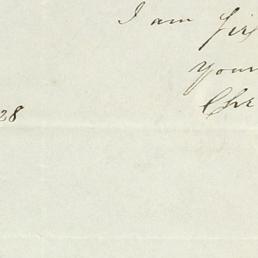 I am Sir
your
Chr
28